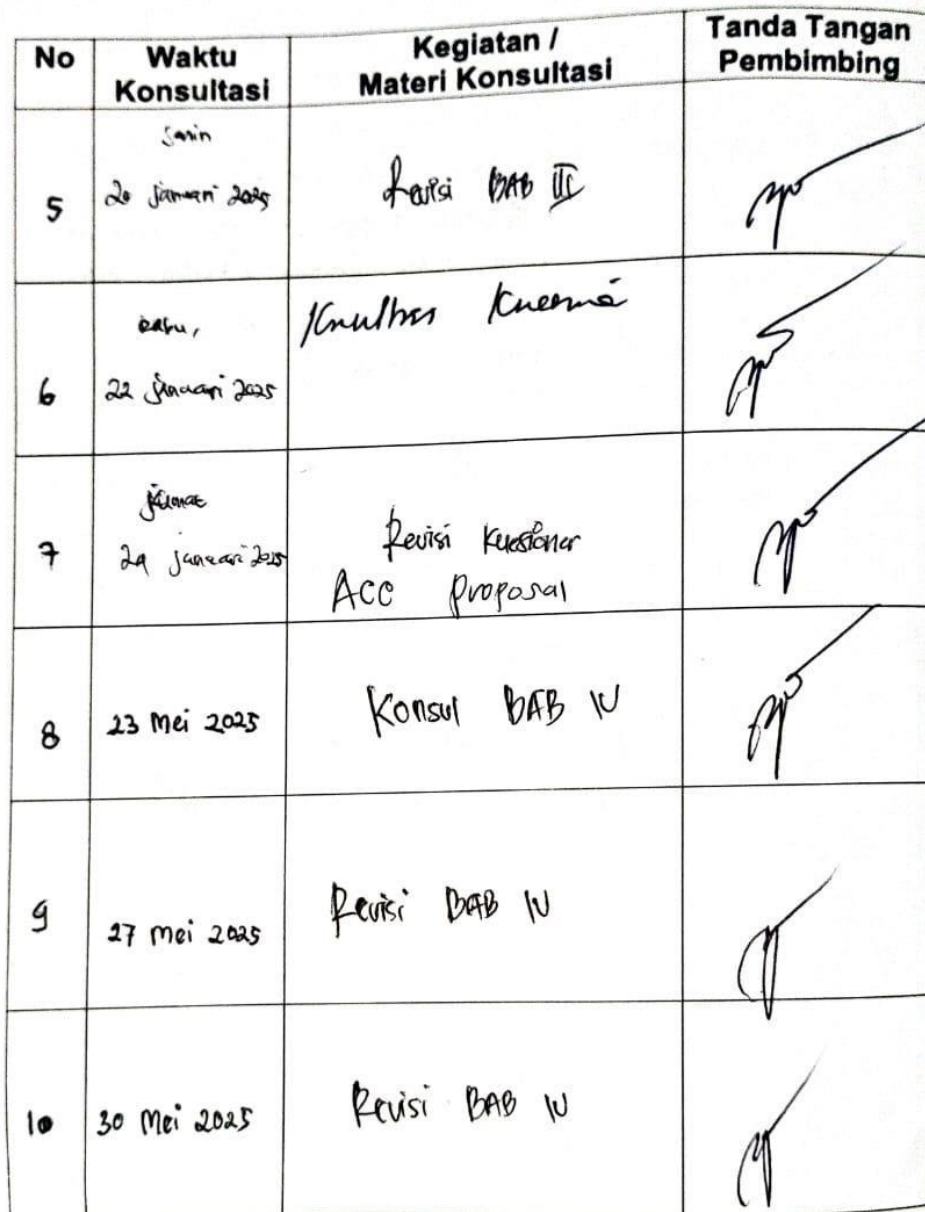 No
Waktu
Konsultasi
Kegiatan /
Materi Konsultasi
Tanda Tangan
Pembimbing
5
Senin
20 Januari 2025
Revisi BAB III
6
Rabu,
22 Januari 2025
7
Jumat
24 Januari 2025
Revisi Kuesioner
ACC Proposal
8
23 Mei 2025
Konsul BAB IV
9
27 Mei 2025
Revisi BAB IV
10
30 Mei 2025
Revisi BAB IV